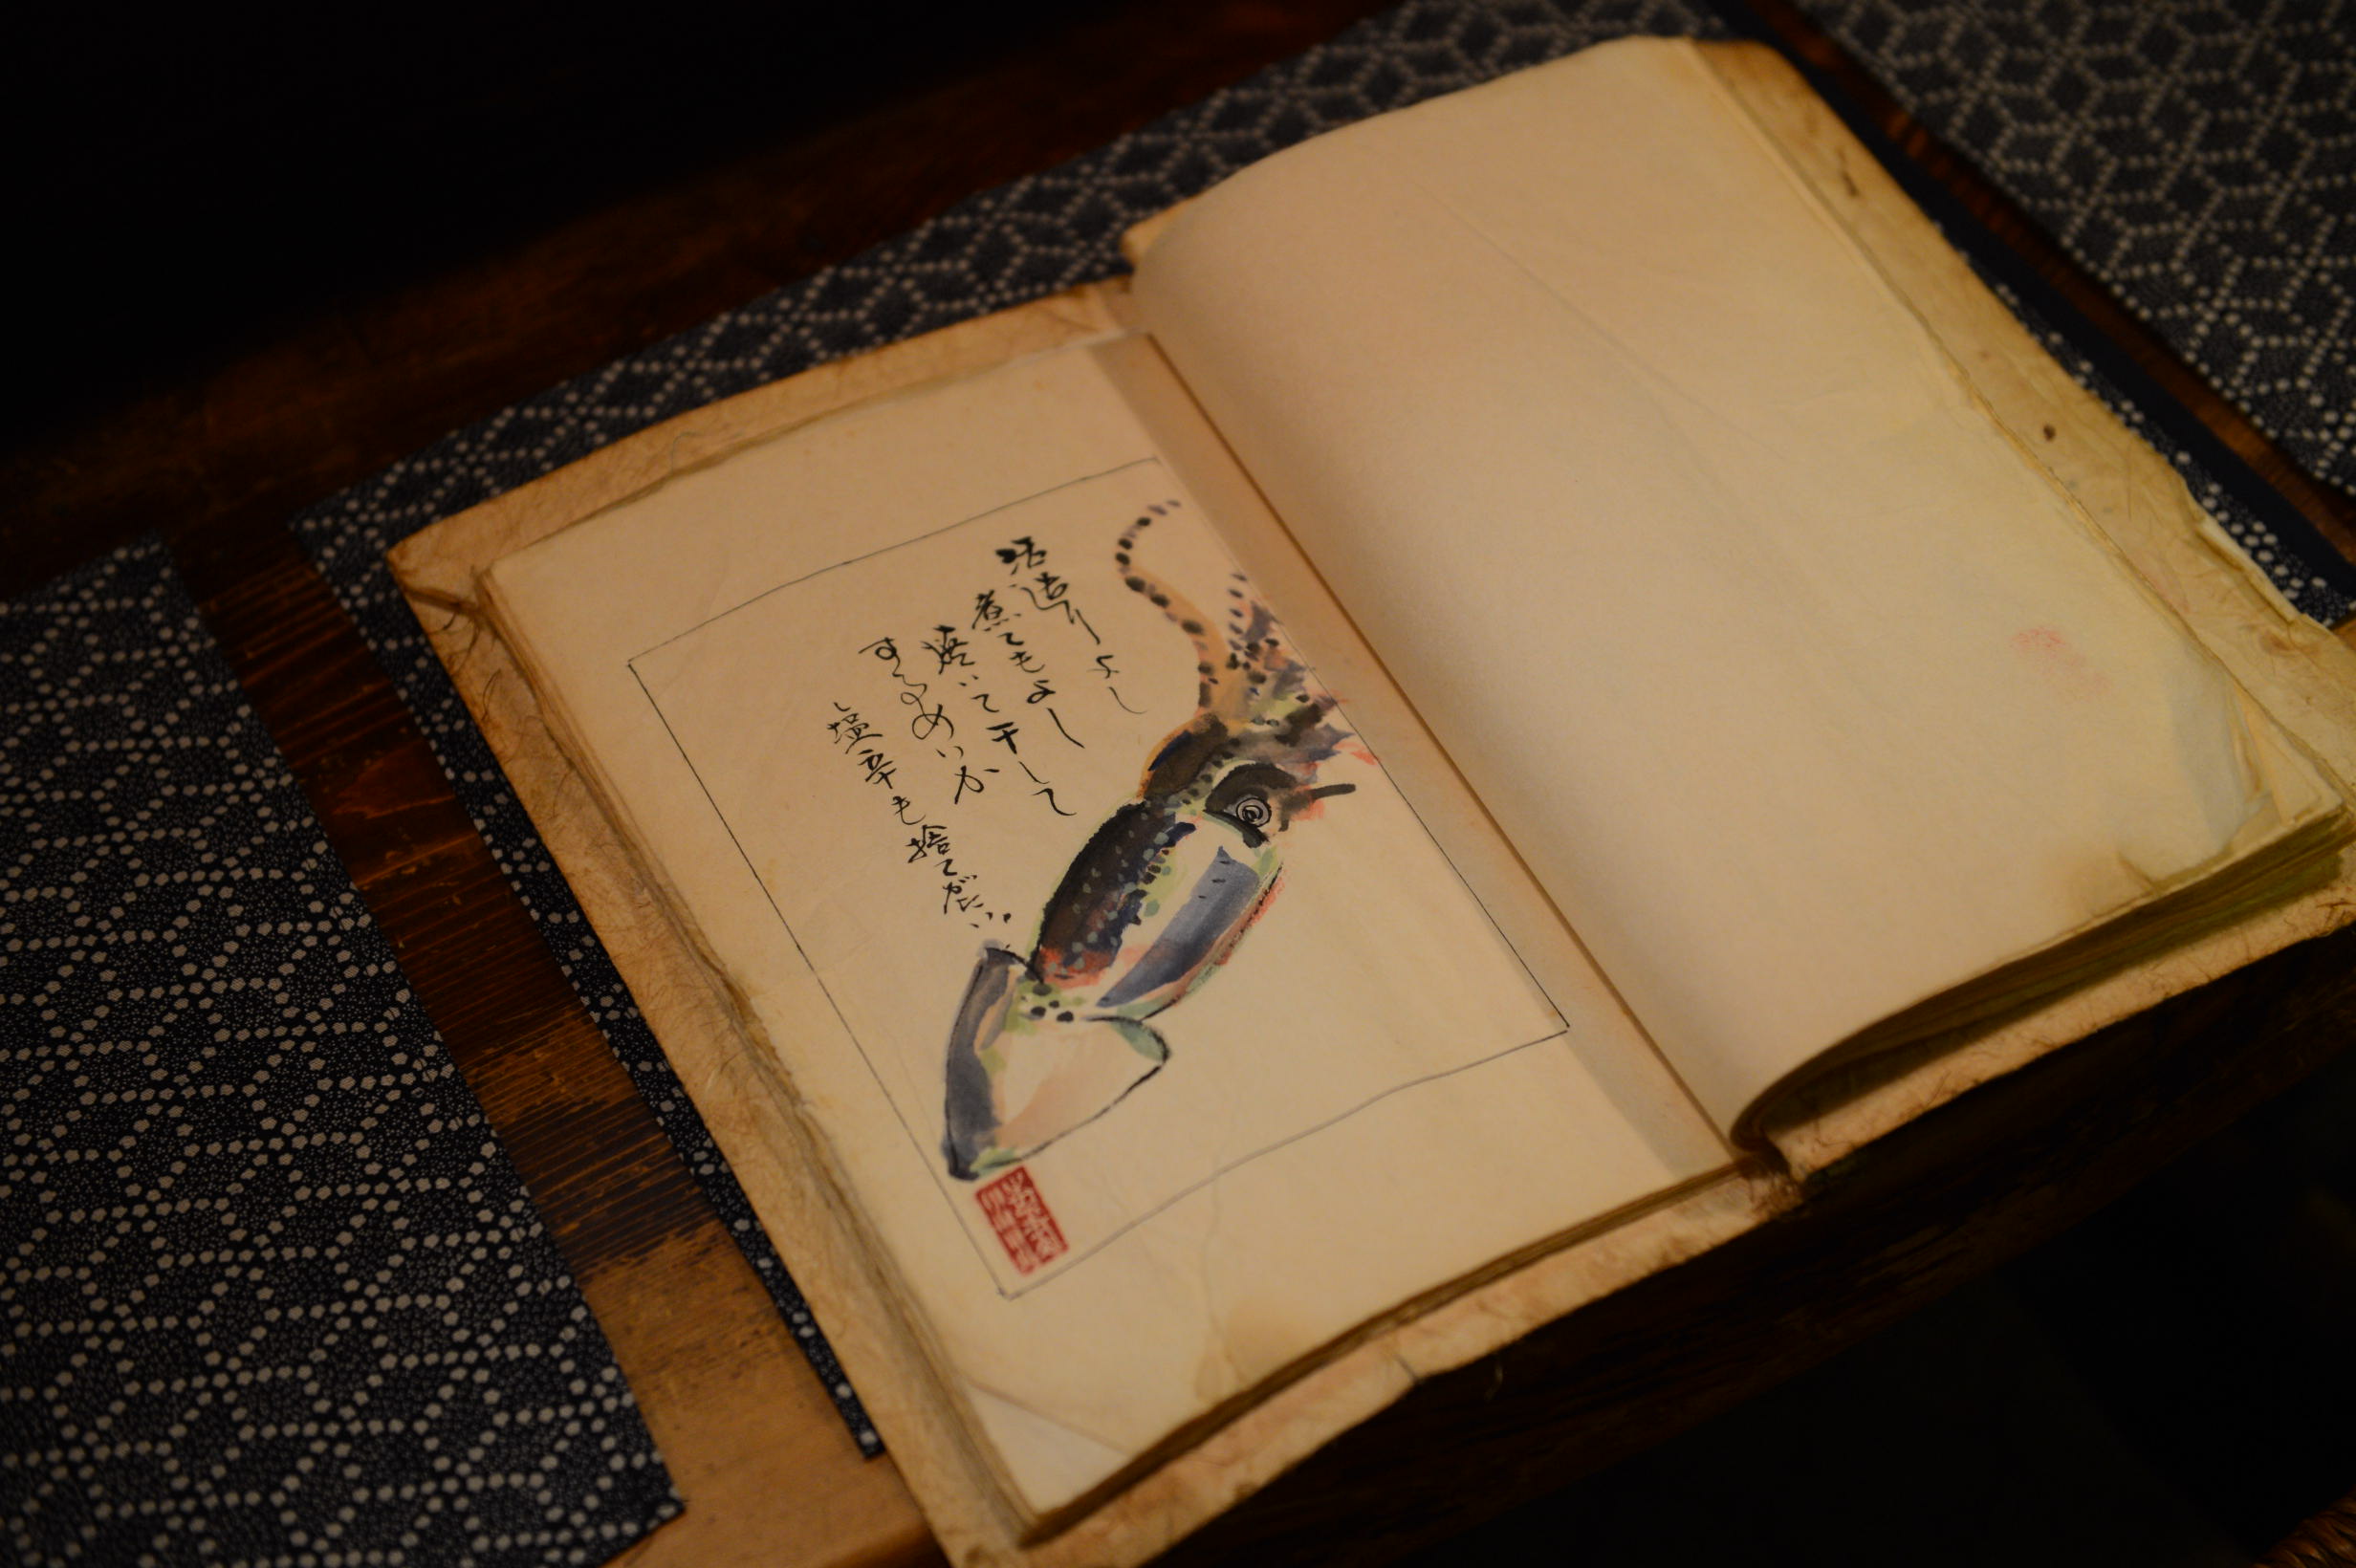 活造りよし
煮てもよし
焼いて干して
するめいか
塩辛も捨てがたい